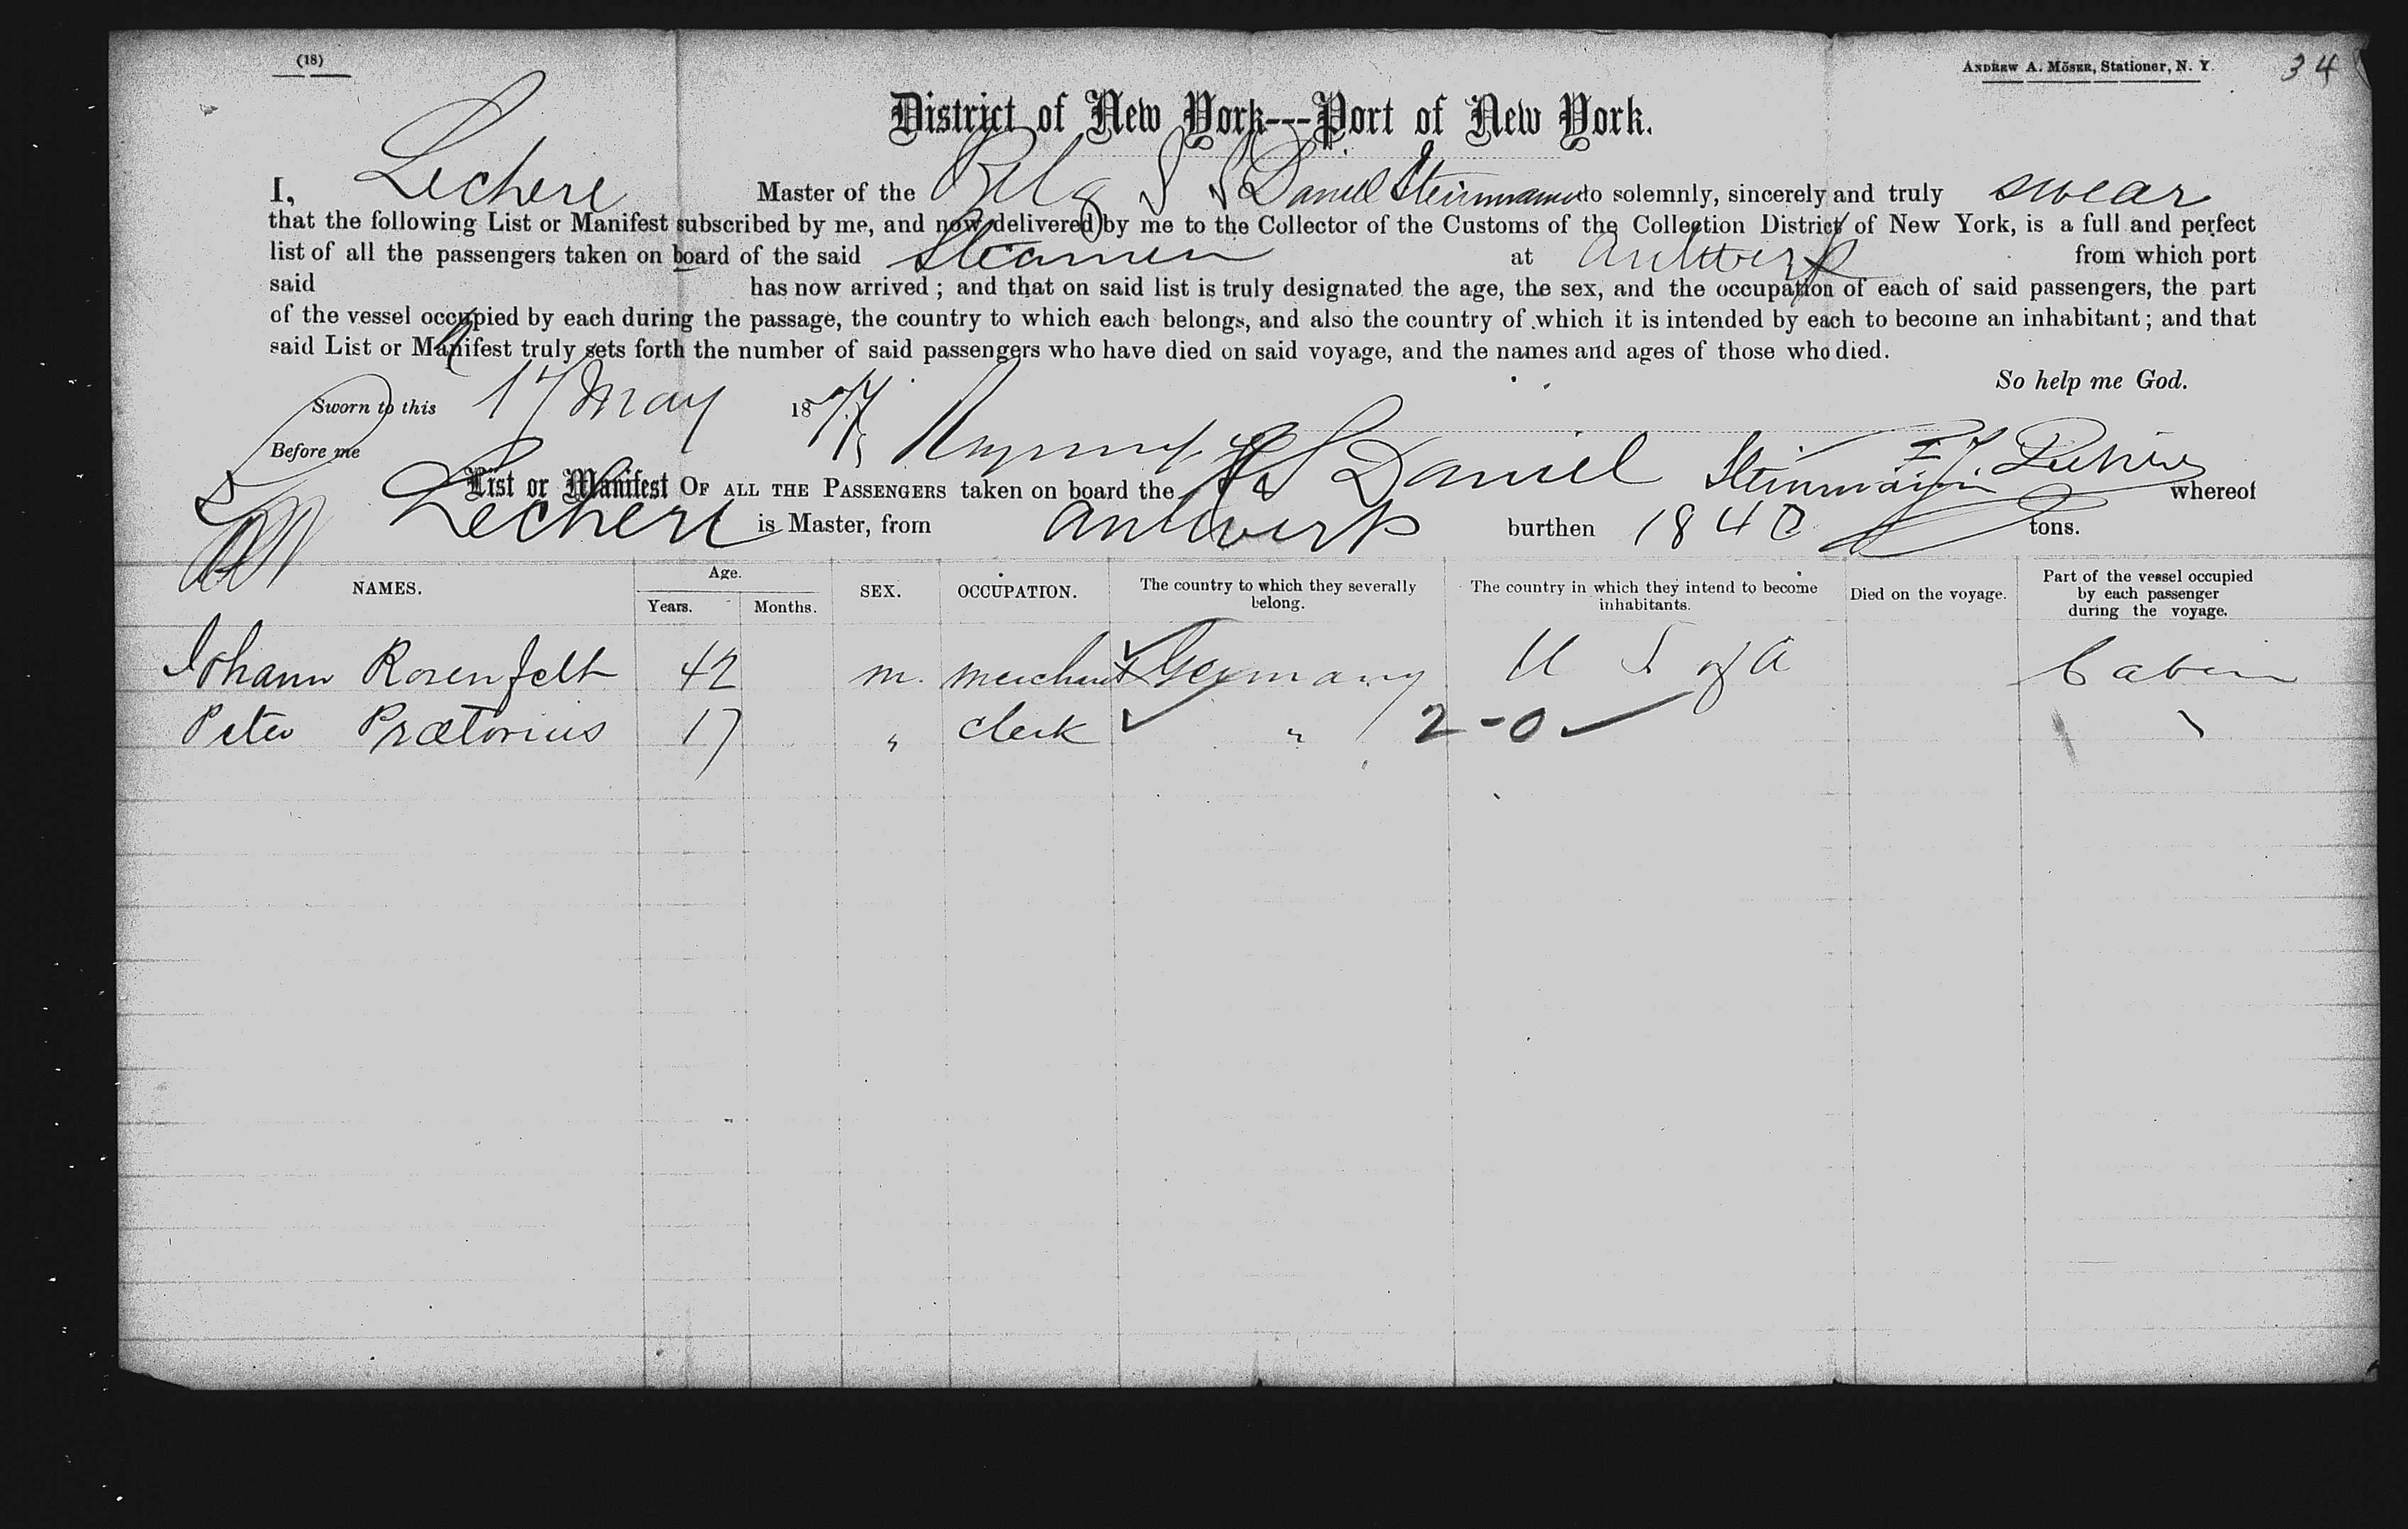 (18)
ANDREW A. MÖSER, Stationer, N. Y.
34
District of New York---Port of New York.
I, Lechere Master of the Belg S S Daniel Steinmann do solemnly, sincerely and truly swear
that the following List or Manifest subscribed by me, and now delivered by me to the Collector of the Customs of the Collection District of New York, is a full and perfect
list of all the passengers taken on board of the said Steamer at Antwerp from which port
said has now arrived ; and that on said list is truly designated the age, the sex, and the occupation of each of said passengers, the part
of the vessel occupied by each during the passage, the country to which each belongs, and also the country of which it is intended by each to become an inhabitant ; and that
said List or Manifest truly sets forth the number of said passengers who have died on said voyage, and the names and ages of those who died.
So help me God.
Sworn to this 17 May 1877
Before me
List or Manifest OF ALL THE PASSENGERS taken on board the SS Daniel Steinmann whereof
Lechere is Master, from Antwerp burthen 1840 tons.
NAMES. Age. Years. Months. SEX. OCCUPATION. The country to which they severally belong. The country in which they intend to become inhabitants. Died on the voyage. Part of the vessel occupied by each passenger during the voyage.
Johann Rosenfelt 42 m. merchant Germany U S of A Cabin
Peter Prætorius 17 " clerk " 2-0